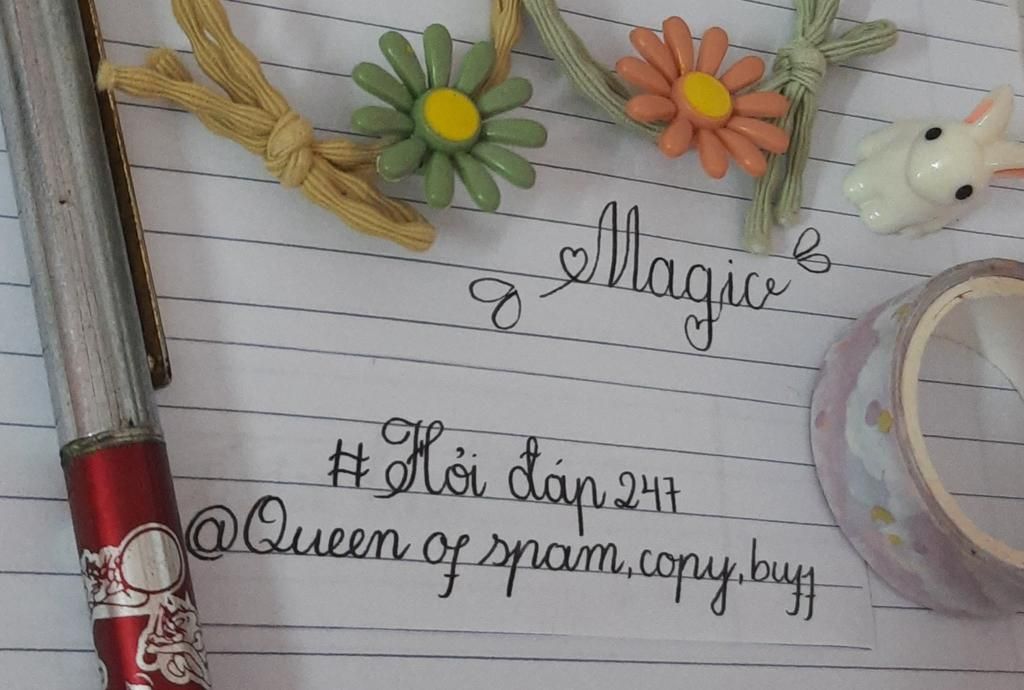 Magic
#Hỏi đáp 247
@Queen of spam, copy, buff